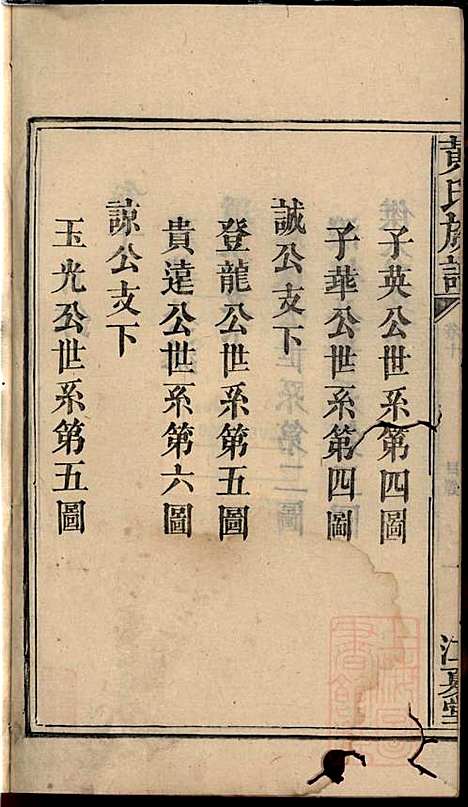 黃氏族譜
卷十
目錄
一
江夏堂
子英公世系第四圖
子華公世系第四圖
誠公支下
登龍公世系第五圖
貴遠公世系第六圖
諒公支下
玉光公世系第五圖